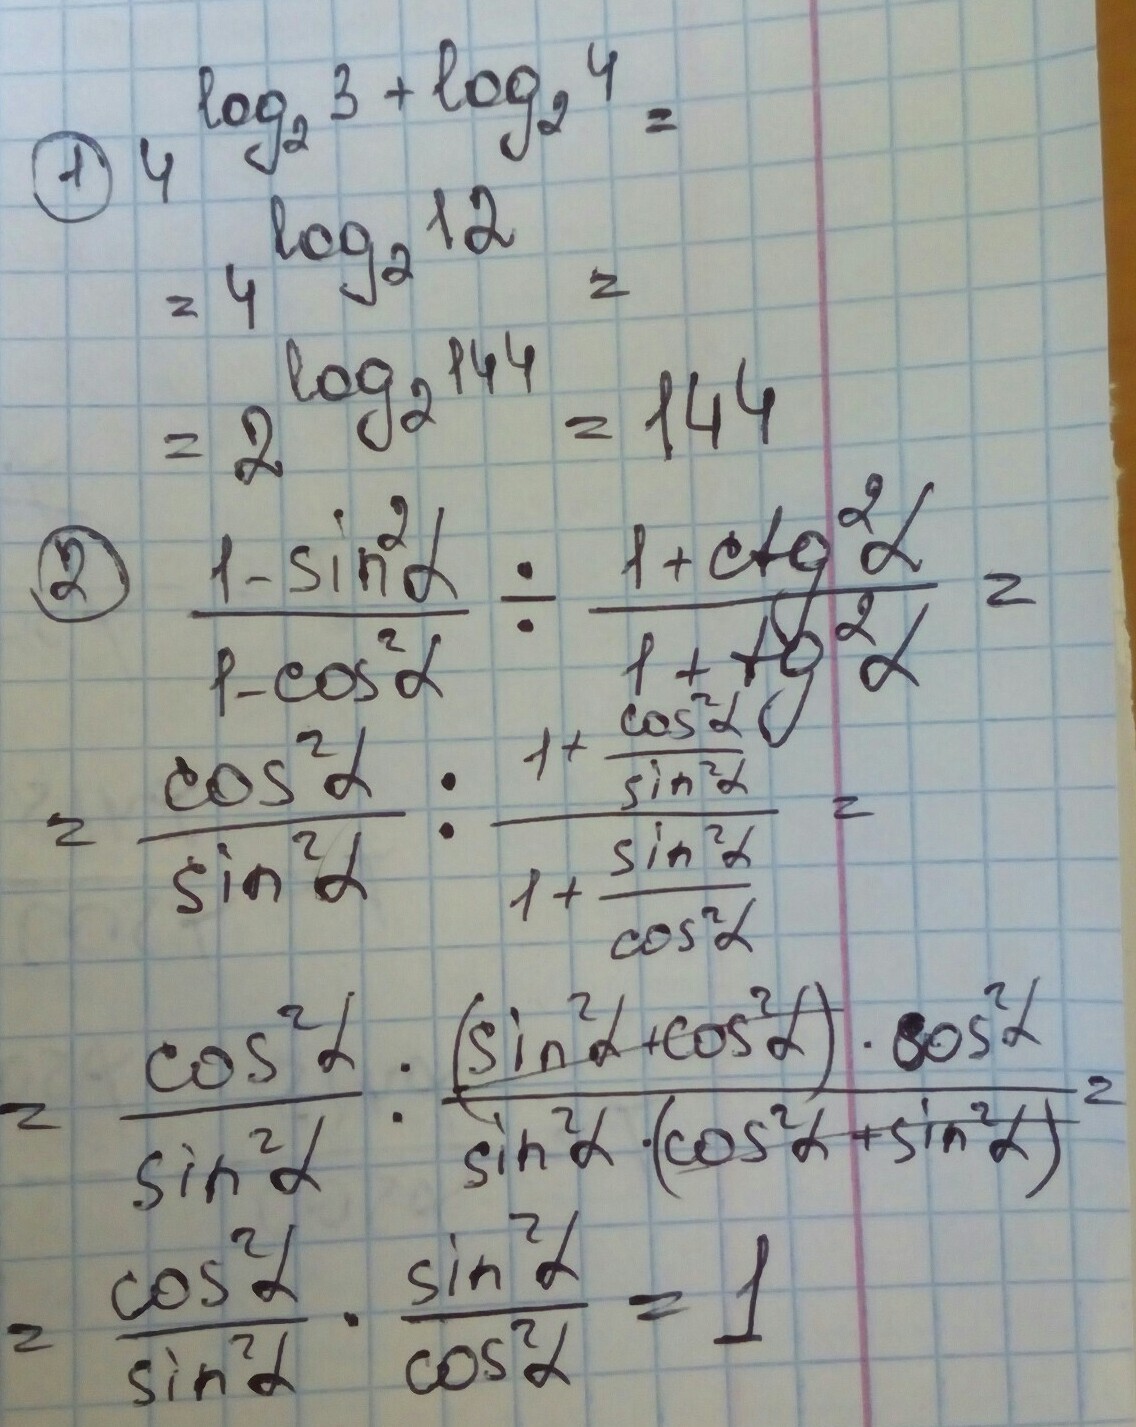 ① 4^(log₂3 + log₂4) =
= 4^(log₂12) =
= 2^(log₂144) = 144
② (1-sin²α)/(1-cos²α) ÷ (1+ctg²α)/(1+tg²α) =
= cos²α/sin²α : (1+cos²α/sin²α)/(1+sin²α/cos²α) =
= cos²α/sin²α : ((sin²α+cos²α)·cos²α)/(sin²α·(cos²α+sin²α)) =
= cos²α/sin²α · sin²α/cos²α = 1